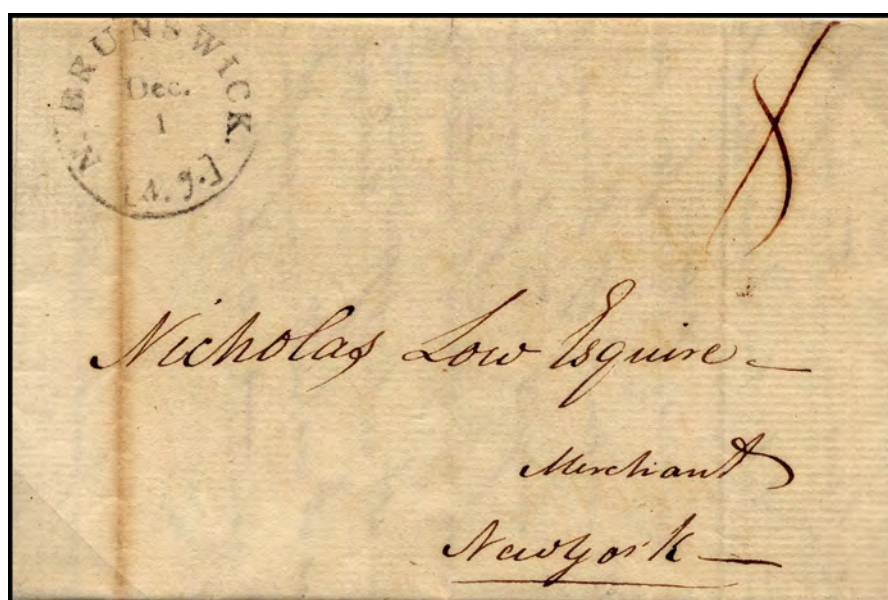 N. BRUNSWICK.
Dec.
1
[N. J.]
8
Nicholas Low Esquire -
Merchant
New York -